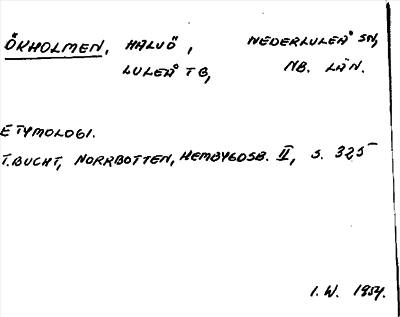 ÖKHOLMEN, HALVÖ, NEDERLULEÅ SN,
LULEÅ TB, NB. LÄN.
ETYMOLOGI.
T. BUCHT, NORRBOTTEN, HEMBYGDSB. II, S. 325
I. W. 1954.